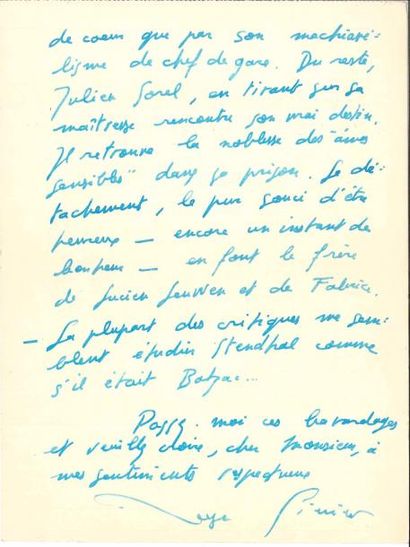 de coeur que par son machiavé-
lisme de chef de gare. Du reste,
Julien Sorel, en tirant sur sa
maîtresse rencontre son vrai destin.
Il retrouve la noblesse des "âmes
sensibles" dans sa prison. Le dé-
tachement, le pur souci d'être
heureux — encore un instant de
bonheur — en font le frère
de Lucien Leuwen et de Fabrice.
— La plupart des critiques me sem-
blent étudier Stendhal comme
s'il était Balzac...
Passez-moi ces bavardages
et veuillez croire, cher Monsieur, à
mes sentiments respectueux